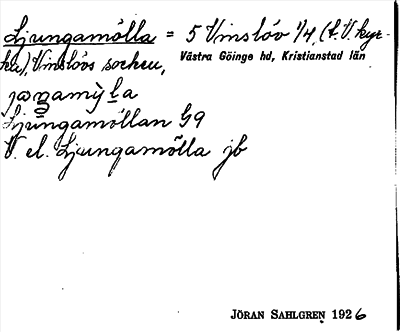 Ljungamölla = 5 Vinslöv 1/4, (t. V. kyr-
ka), Vinslövs socken,
Västra Göinge hd, Kristianstad län
Ljungamöllan G9
V. el. Ljungamölla jb
JÖRAN SAHLGREN 1926